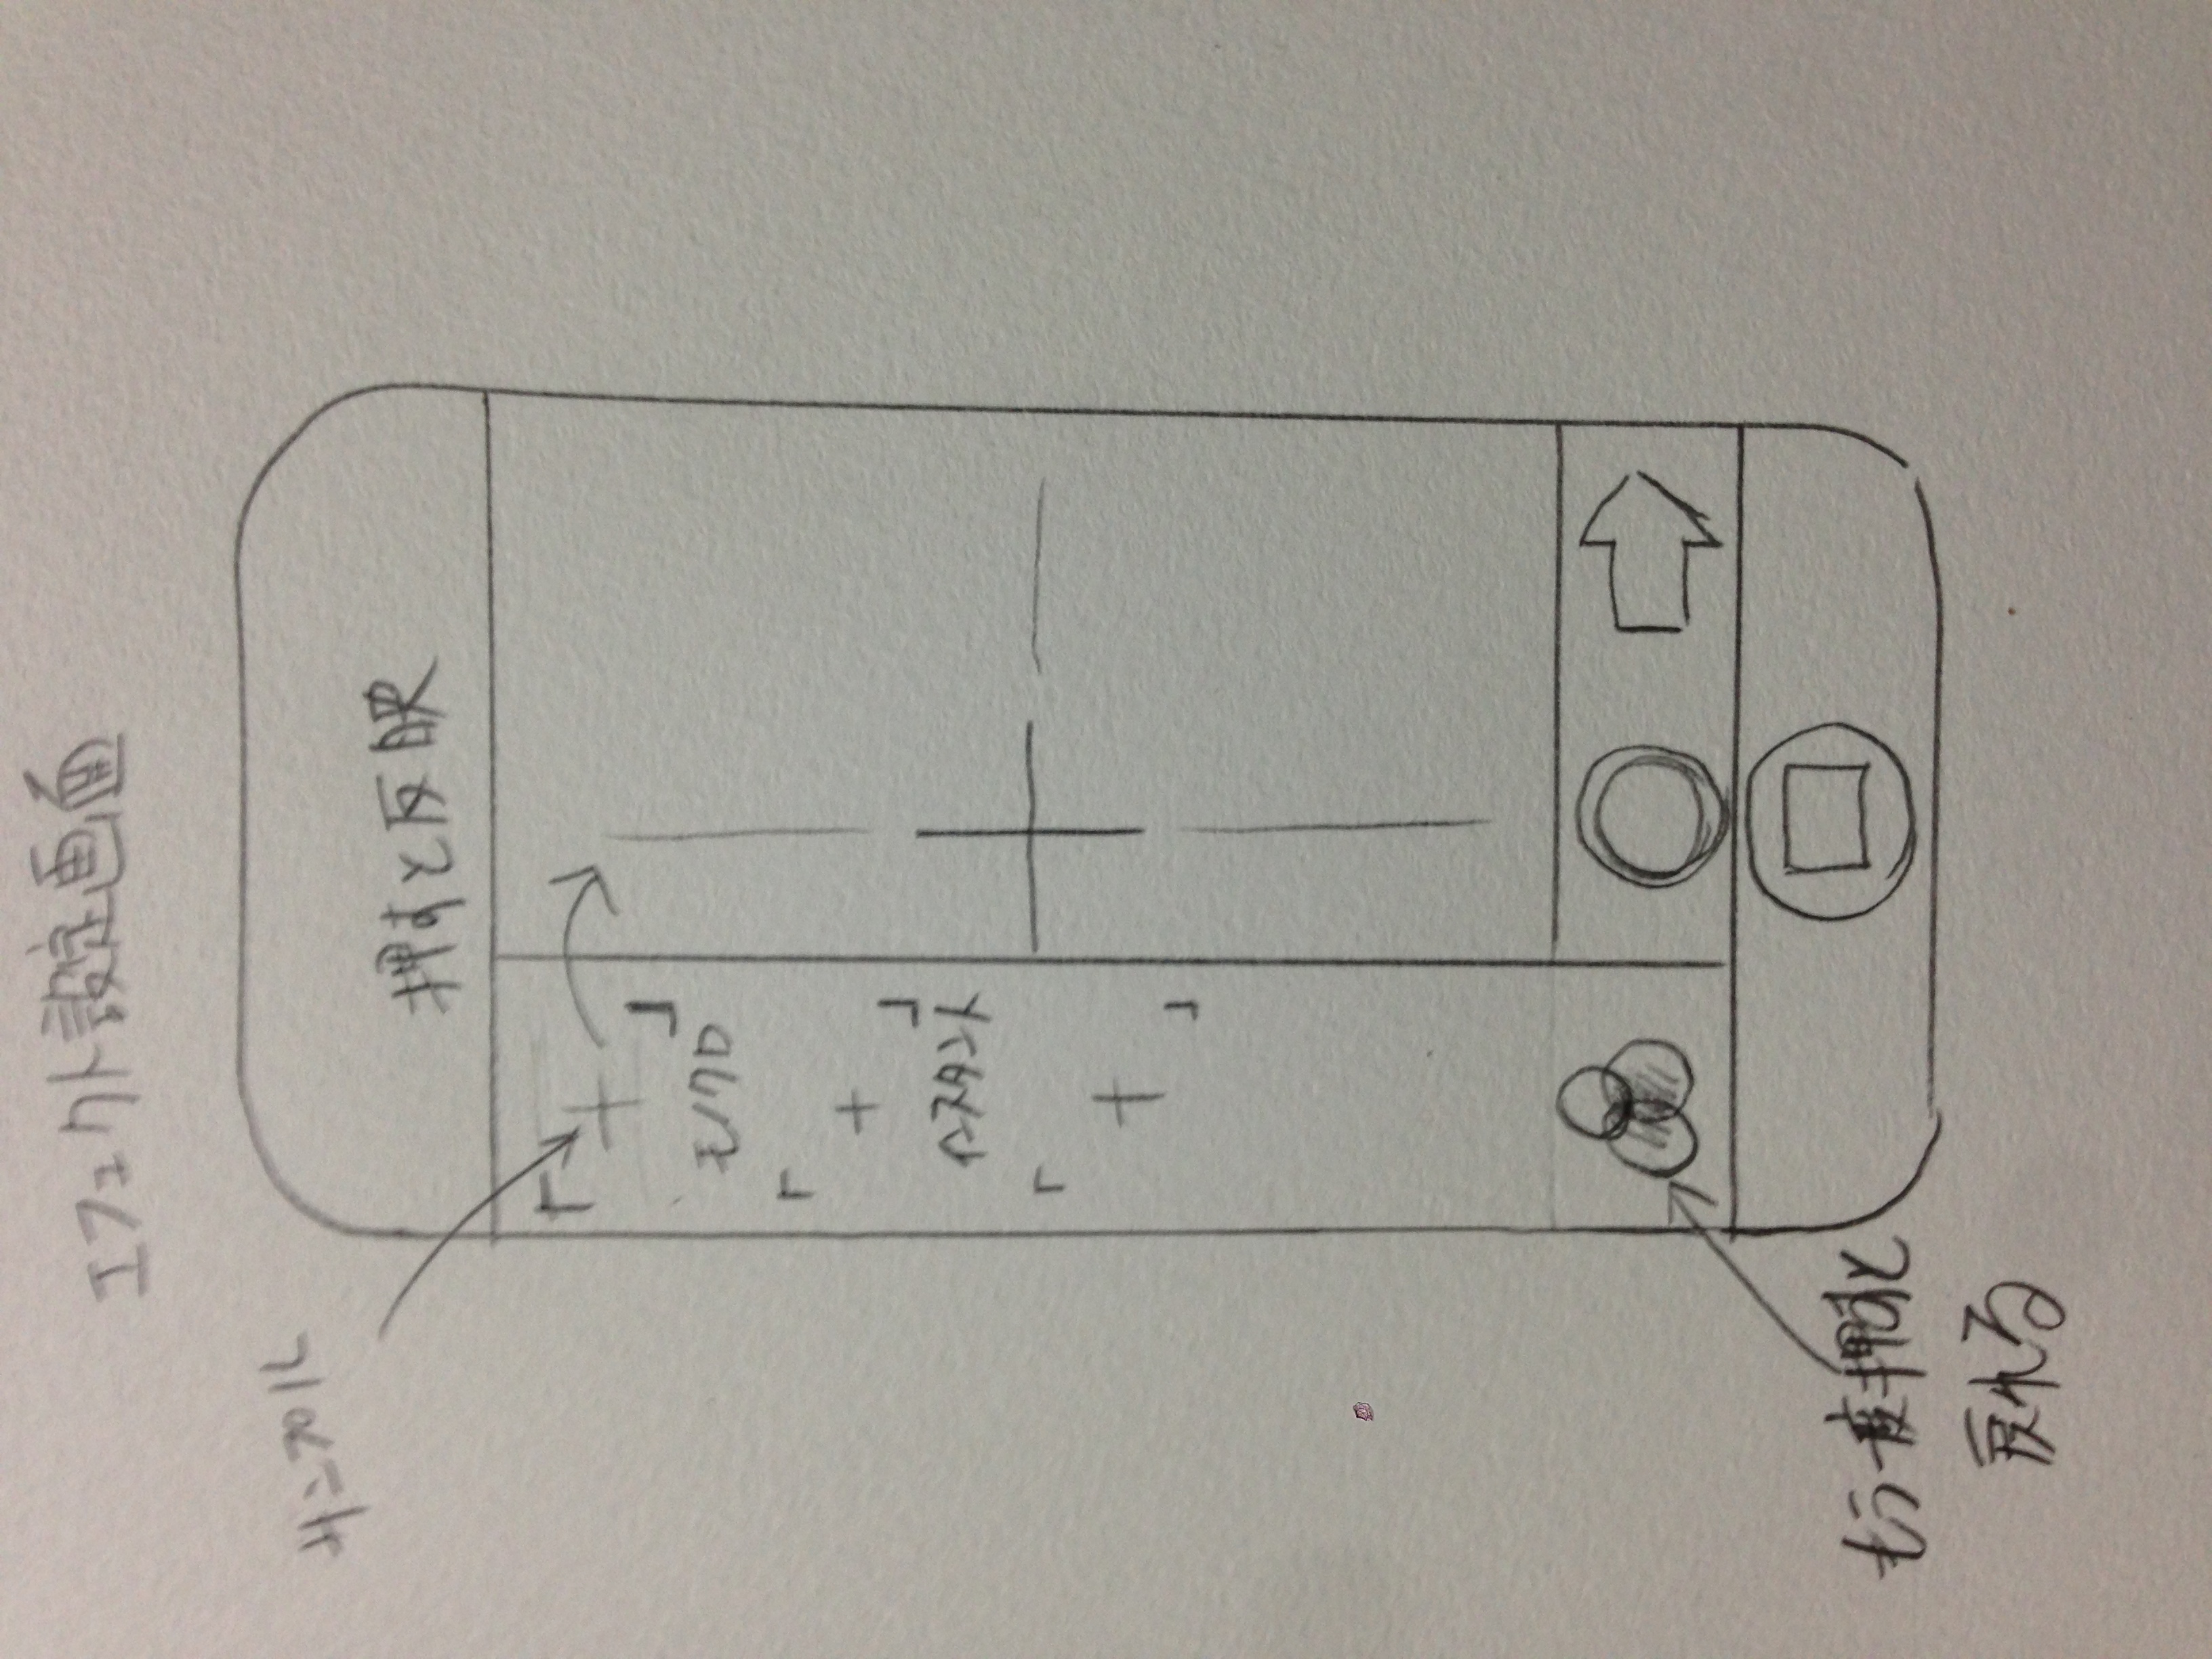 エフェクト設定画面
サンプル
押すと反映
モノクロ
インスタント
もう一度押すと
戻れる